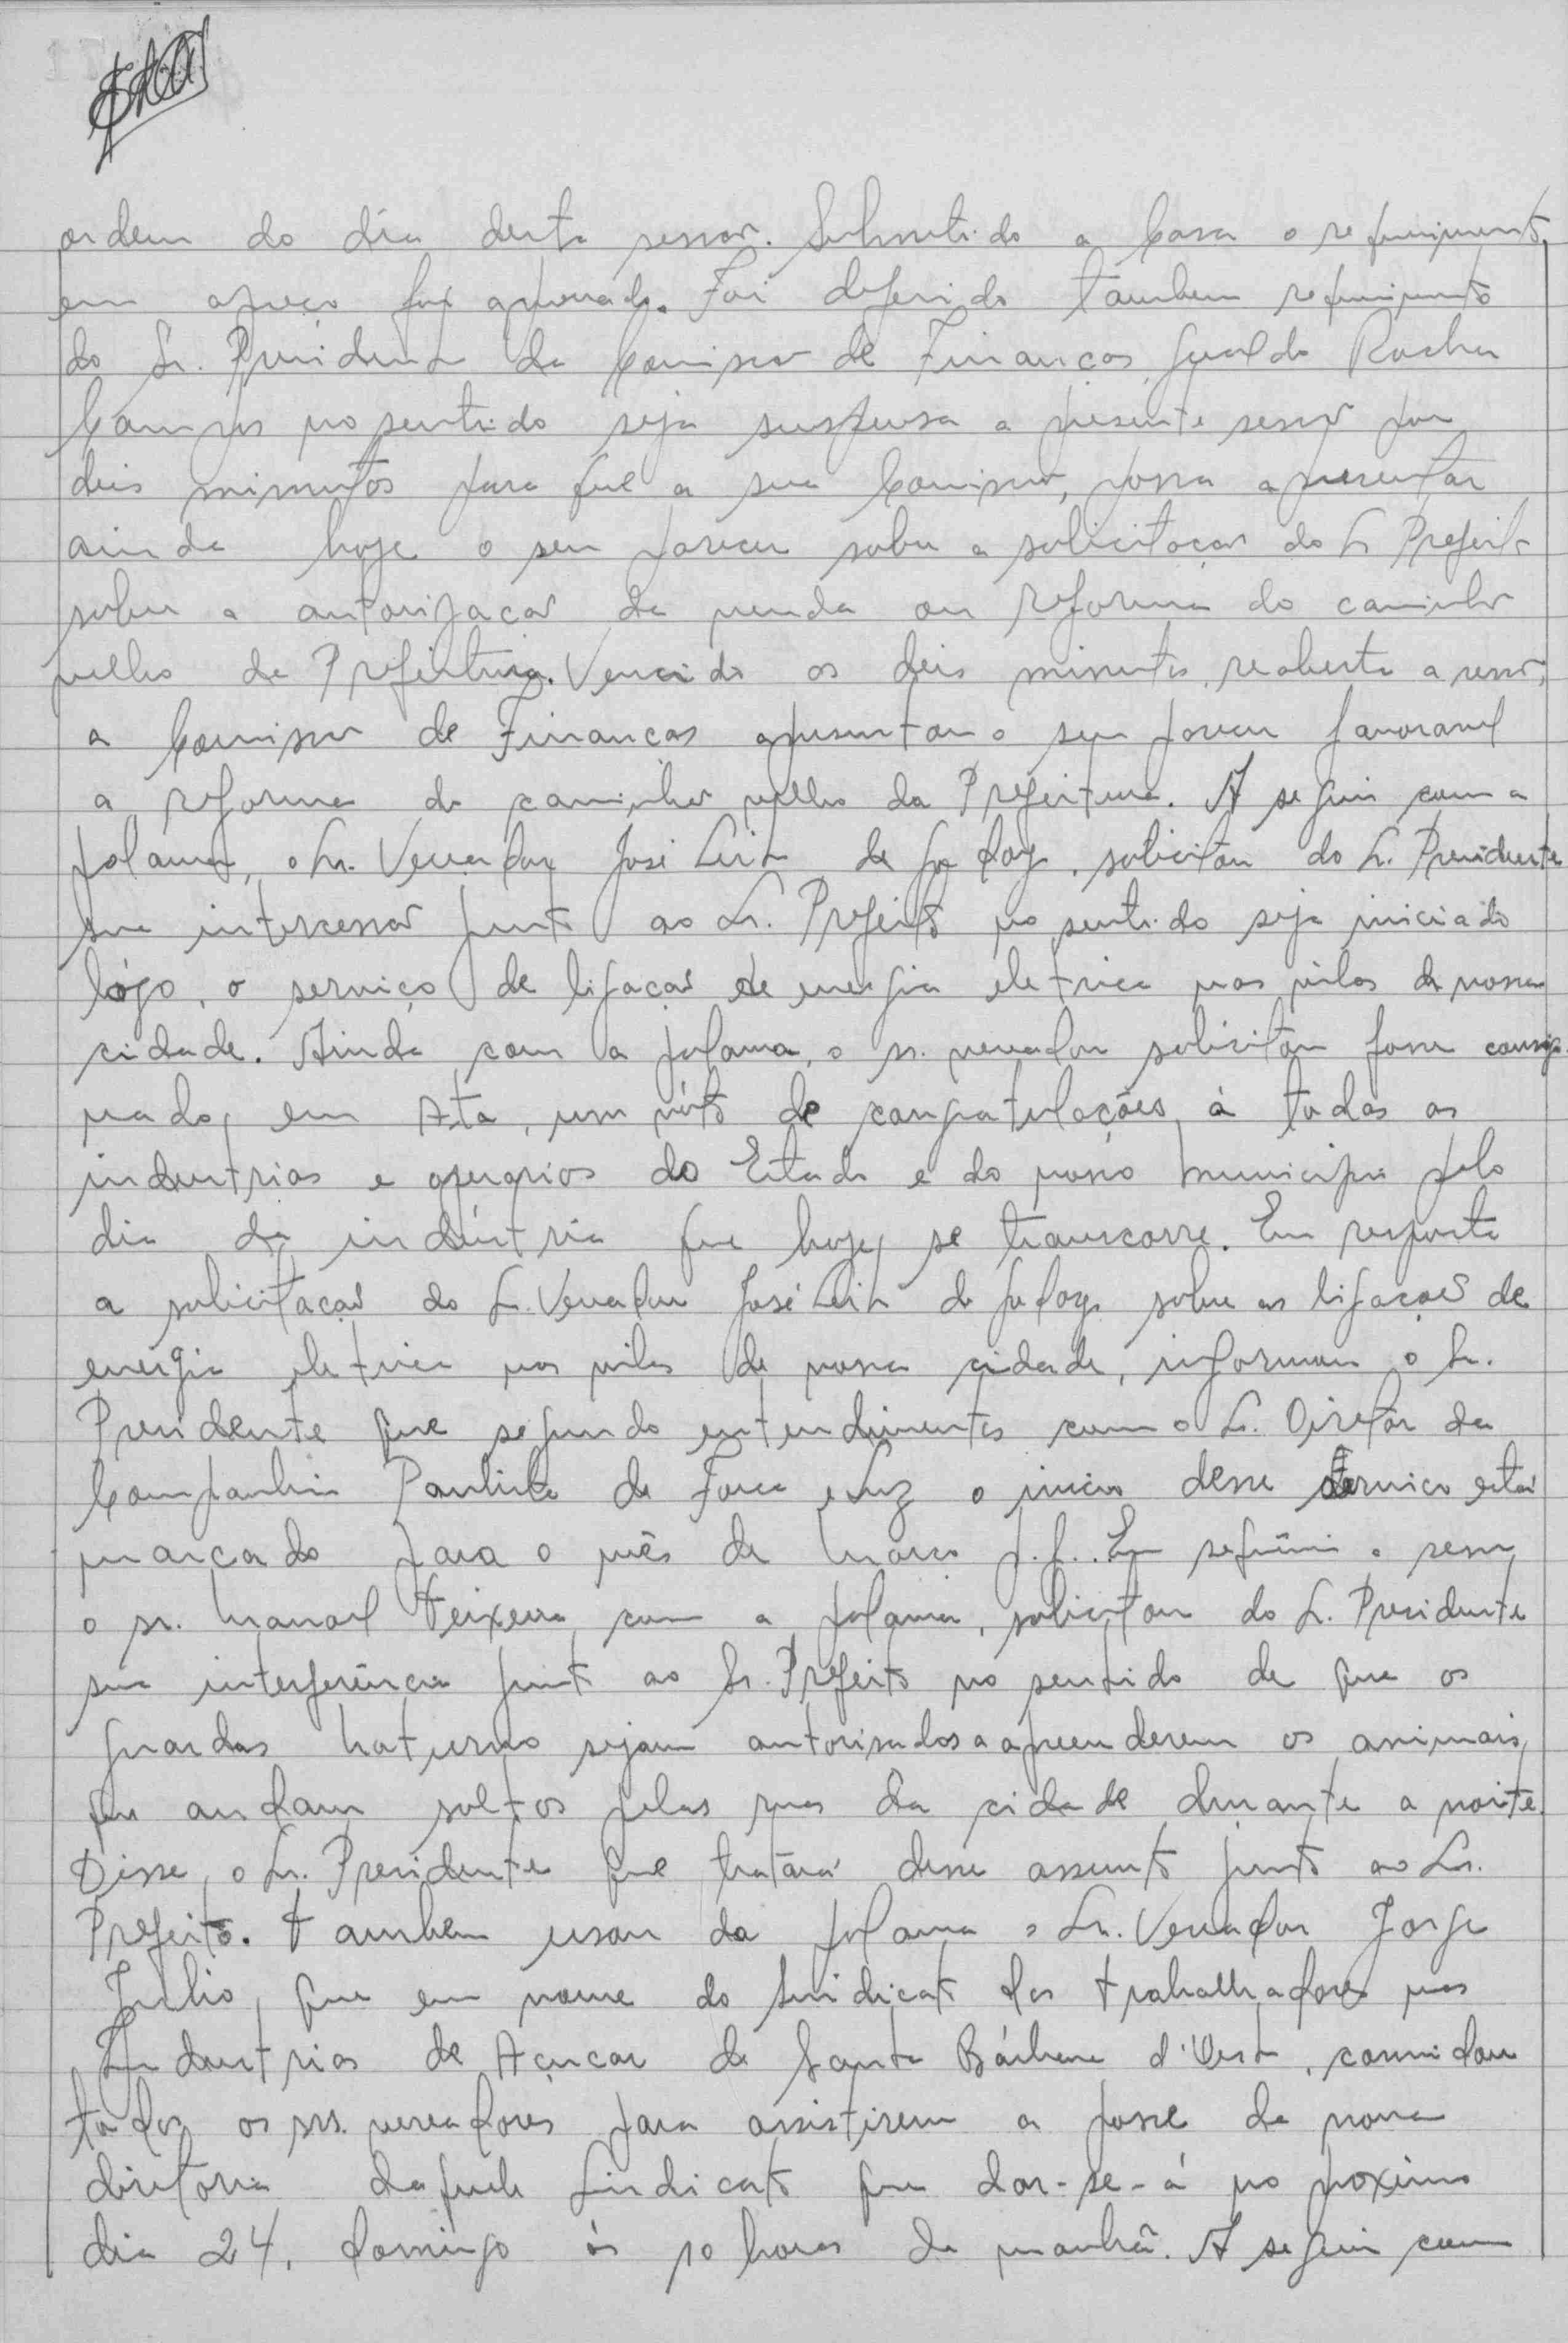 ordem do dia desta sessão. Submetido a Casa o requerimento
em apreço foi aprovado. Foi deferido tambem requerimento
do Sr. Presidente da Comissão de Finanças, Geraldo Rocha
Campos no sentido seja suspensa a presente sessão por
dois minutos para que a sua Comissão, possa apresentar
ainda hoje o seu parecer sobre a solicitação do Sr Prefeito
sobre a autorização da venda ou reforma do caminhão
velho da Prefeitura. Vencido os dois minutos, reaberta a sessão,
a Comissão de Finanças apresentou o seu parecer favoravel
a reforma do caminhão velho da Prefeitura. A seguir com a
palavra, o Sr. Vereador José Leite de Godoy, solicitou do Sr. Presidente
sua intercessão junto ao Sr. Prefeito no sentido seja iniciado
lógo, o serviço de ligação de energia eletrica nas vilas da nossa
cidade. Ainda com a palavra, o sr. vereador solicitou fosse consig-
nado, em Ata, um vóto de congratulações, á todas as
industrias e operarios do Estado e do nosso municipio pelo
dia da indústria que hoje, se transcorre. Em resposta
a solicitação do Sr. Vereador José Leite de Godoy sobre as ligações de
energia eletrica nas vilas de nossa cidade, informou o Sr.
Presidente que segundo entendimentos com o Sr. Diretor da
Companhia Paulista de Força e Luz o inicio desse serviço está
marcado para o mês de Março p.f.. Em seguimento
o sr. Manoel Teixeira com a palavra, solicitou do Sr. Presidente
sua interferência junto ao Sr. Prefeito no sentido de que os
guardas noturno sejam autorisados a apreenderem os animais,
que andam soltos pelas ruas da cidade durante a noite.
Disse, o Sr. Presidente que tratará desse assunto junto ao Sr.
Prefeito. Tambem usou da palavra o Sr. Vereador Jorge
Julio, que em nome do Sindicato dos trabalhadores nas
Industrias de Açucar de Santa Bárbara d'Oeste, convidou
todos os srs. vereadores para assistirem a posse da nova
diretoria daquele Sindicato que dar-se-á no proximo
dia 24, domingo ás 10 horas da manhã. A seguir com